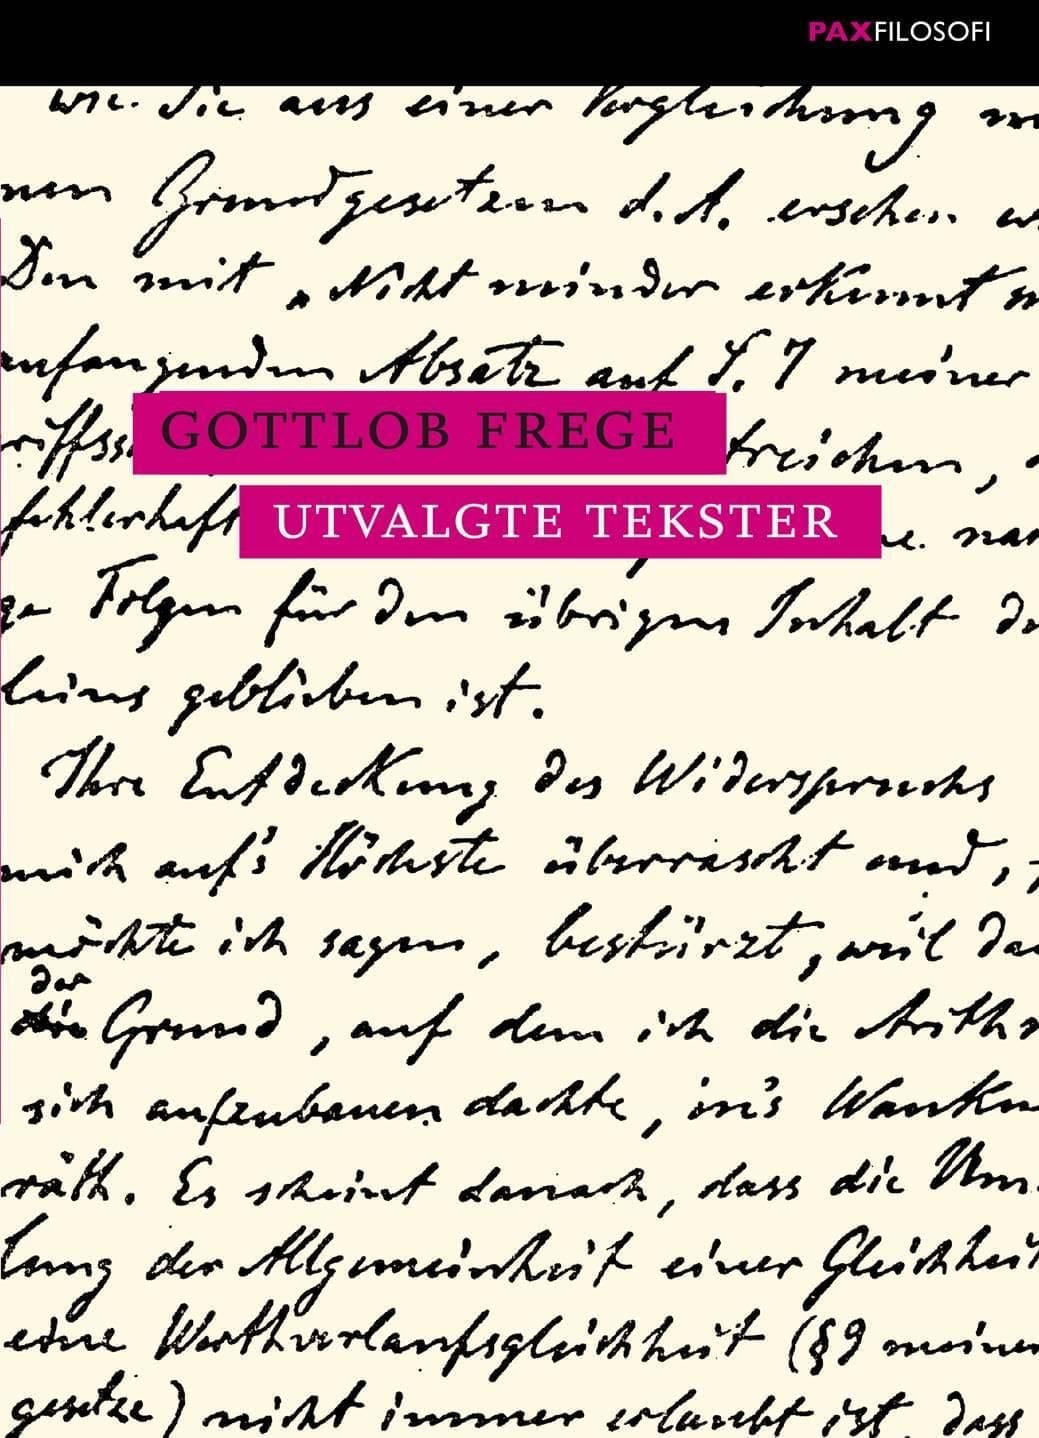 PAXFILOSOFI
wie Sie aus einer Vergleichung m
nen Grundgesetzen d. A. ersehen w
Den mit „Nicht minder erkennt m
anfangenden Absatz auf S. 7 meiner
riffss
GOTTLOB FREGE
treichen,
fehlerhaft
UTVALGTE TEKSTER
ne nac
ge Folgen für den übrigen Inhalt de
leins geblieben ist.
Ihre Entdeckung des Widerspruchs
mich auf's Höchste überrascht und, f
möchte ich sagen, bestürzt, weil da
der
Grund, auf dem ich die Arithm
sich aufzubauen dachte, in's Wanken
räth. Es scheint danach, dass die Um
lung der Allgemeinheit einer Gleichheit
eine Werthverlaufsgleichheit (§9 meiner
gesetze) nicht immer erlaubt ist, dass